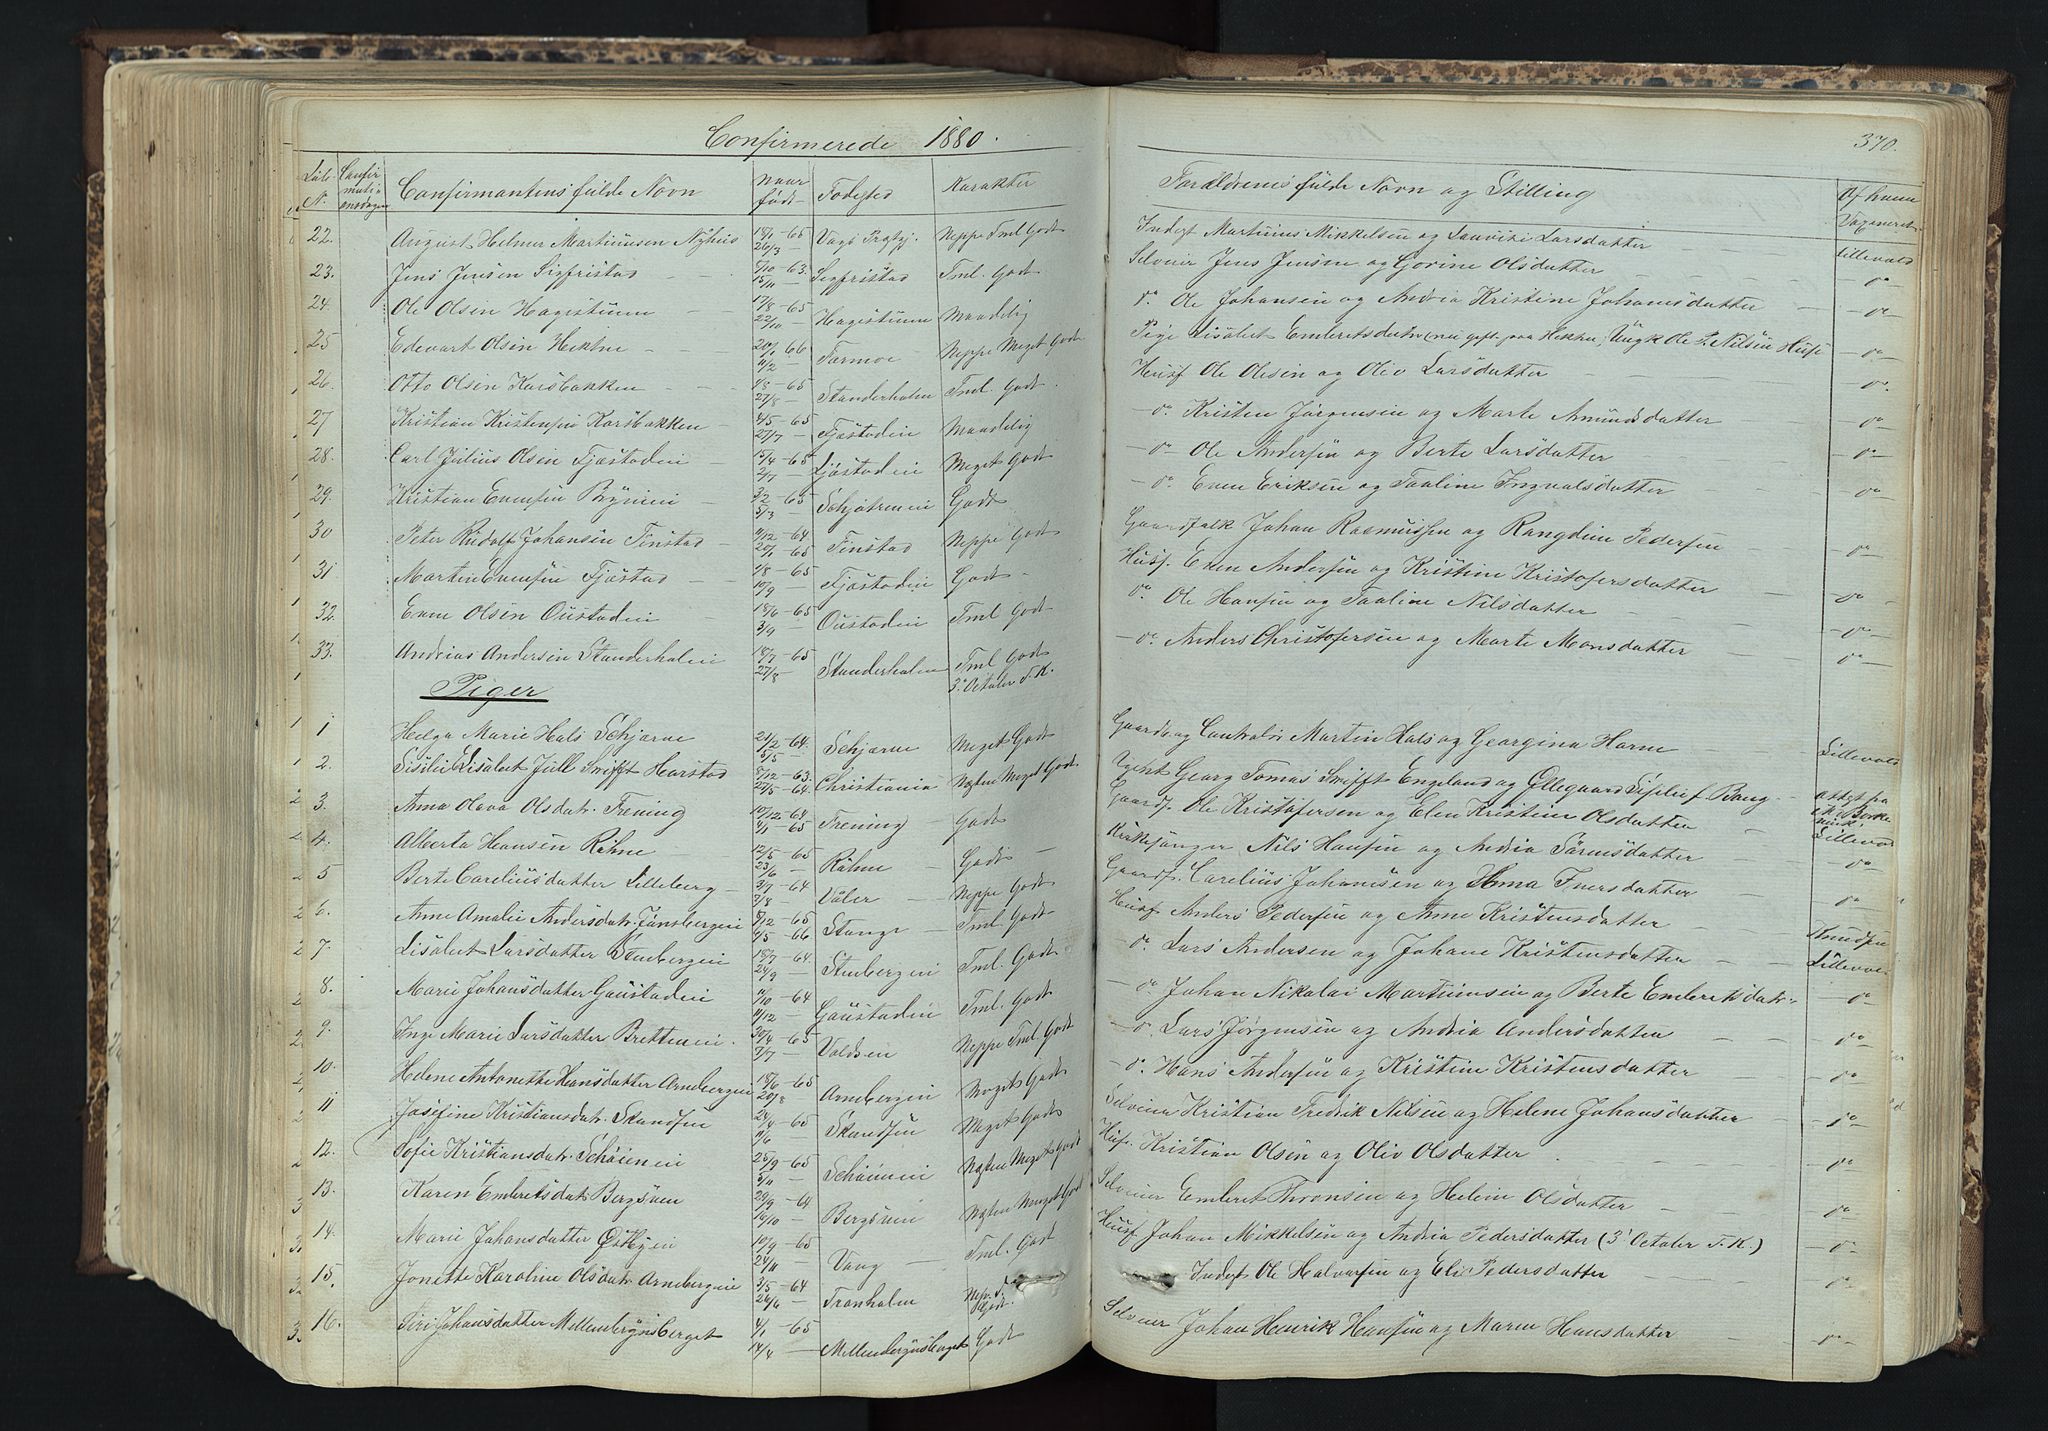 Confirmerede 1880.
370.
Löbe N. Confirmationsdagen Confirmantens fulde Navn naar födt Födested Karakter Forældrenes fulde Navn og Stilling Af hvem Vaxineret
22. August Helmer Martiniusen Nyhus 18/1-65 26/3 Neppe Tml Godt Inderst Martinius Mikkelsen og Lauvise Larsdatter Lillevold
23. Jens Jensen Sigfristad 5/10-63. 15/11 Sigfristad Tml. Godt Selveier Jens Jensen og Gorine Olsdatter do
24. Ole Olsen Hagestuen 17/8-65 22/10 Hagestuen Maadelig do. Ole Johansen og Andrea Kristine Johannesdatter do
25 Edevart Olsen Hektne 20/1 66 Tormoe Neppe Meget Godt Pige Lisabet Embretsdatr (nu gift paa Hektne, Ungk Ole P. Nilsen Husf do
26. Otto Olsen Karsbakken 1/8-65 27/8 Standerholm Tml. Godt Husf Ole Olesen og Oliv Larsdatter do.
27 Kristian Kristensen Karsbakken 4/5-65 27/7 Fjöstaden Maadelig do Kristen Jørgensen og Marte Amundsdatter do
28. Carl Julius Olsen Fjæstaden 15/4-65 2/7 Fjöstaden Meget Godt do Ole Andersen og Berte Larsdatter do
29. Kristian Evensen Brynien 3/2-65 5/3 Godt do. Even Eriksen og Taaline Ingvalsdatter do
30 Peter Rudolf Johansen Finstad 9/12-64 20/1-65 Finstad Neppe Godt Gaardfolk Johan Rasmussen og Rangdine Pedersen do
31 Martin Evensen Fjöstad 1/8-65 10/9 Fjöstaden Godt Husf. Even Andersen og Kristine Kristofersdatter do
32. Even Olsen Oustaden 18/6-65 3/9 Oustaden Tml Godt do. Ole Hansen og Taaline Nilsdatter do
33. Andreas Andersen Standerholen 18/7-65 27/8 Standerholm Tml Godt 3. Octaler T. K. do Anders Christofersen og Marte Monsdatter do
Piger
1 Helga Marie Hals Schjærne 21/2-64. 5/5 Schjærne Meget Godt Martin Hals og Georgina Harm Lillevold
2. Lisabet Jull Swifft Harstad 5/12-63. 27/5-64. Christiania Næsten Meget Godt. Georg Tomas Swifft Engeland og Ollegaard Bang Attest fra
3. Anna Olava Olsdatr. Frening 10/12-64 4/1-65 Frening Godt Gaardf. Ole Kristofersen og Elen Kristine Olsdatter
4. Alberta Hansen Röhne 12/5-65 23/6 Röhne Godt Kirkesanger Nils Hansen og Andrea Lillevold
5 Berte Careliusdatter Lilleberg 3/7-64 7/8 Vaaler Neppe Godt Gaardf. Carelius Johannesen og Anna Iversdatter do
6. Anne Amalie Andersdatr. Tönsbergeni 8/12-65 4/5-66 Stange Tml. Godt Husf Anders Pedersen og Anne Kristensdatter do
7. Lisabet Larsdatter Stenbergeni 18/7-64. 24/9 Stenbergeni Tml. Godt do. Lars Andersen og Johane Kristensdatter Knudsen
8. Marie Johansdatter Gaustaden 11/10-64 11/12 Gaustaden Tml. Godt do Johan Nikolai Martinnsen og Berte Embretsdatr. Lillevold
9. Inge Marie Larsdatter Bretteneni. 30/4-65 7/7 Voldsen Neppe Tml. Godt do Lars Jörgensen og Andrea Andersdatter do
10. Helene Antonette Hansdatter Arnebergeni 18/6-65 20/8 Arnebergeni Meget Godt do. Hans Andersen og Kristine Kristensdatter do
11 Josefine Kristiansdatr. Skandsen 24/4-65 11/6 Skandsen Meget Godt Selveier Kristian Fredrik Nilsen og Helene Johansdatter do
12. Sofie Kristiansdatr. Schöieneni 25/9-65 5/11 Schöieneni Næsten Meget Godt Husf. Kristian Olsen og Oliv Olsdatter do
13. Karen Embretsdatr Bergsuen 29/9-64 16/10 Bergsuen Næsten Meget Godt Selveier Embret Thronsen og Helene Olsdatter do
14. Marie Johansdatter Østbyen 10/9-65 24/11 Vang Tml. Godt Husf Johan Mikkelsen og Andrea Pedersdatter (3 Octaler T. K.) do
15. Jonette Karoline Olsdatr. Arnebergeni 3/5-64 26/6 Tranholm Nep. T. Godt. Inderst Ole Halvorsen og Eli Pedersdatter do
16. Siri Johansdatter Mellembynsberget 4/1-65 14/4 Mellembynsberget Godt Selveier Johan Henrik Hansen og Maren Hansdatter do